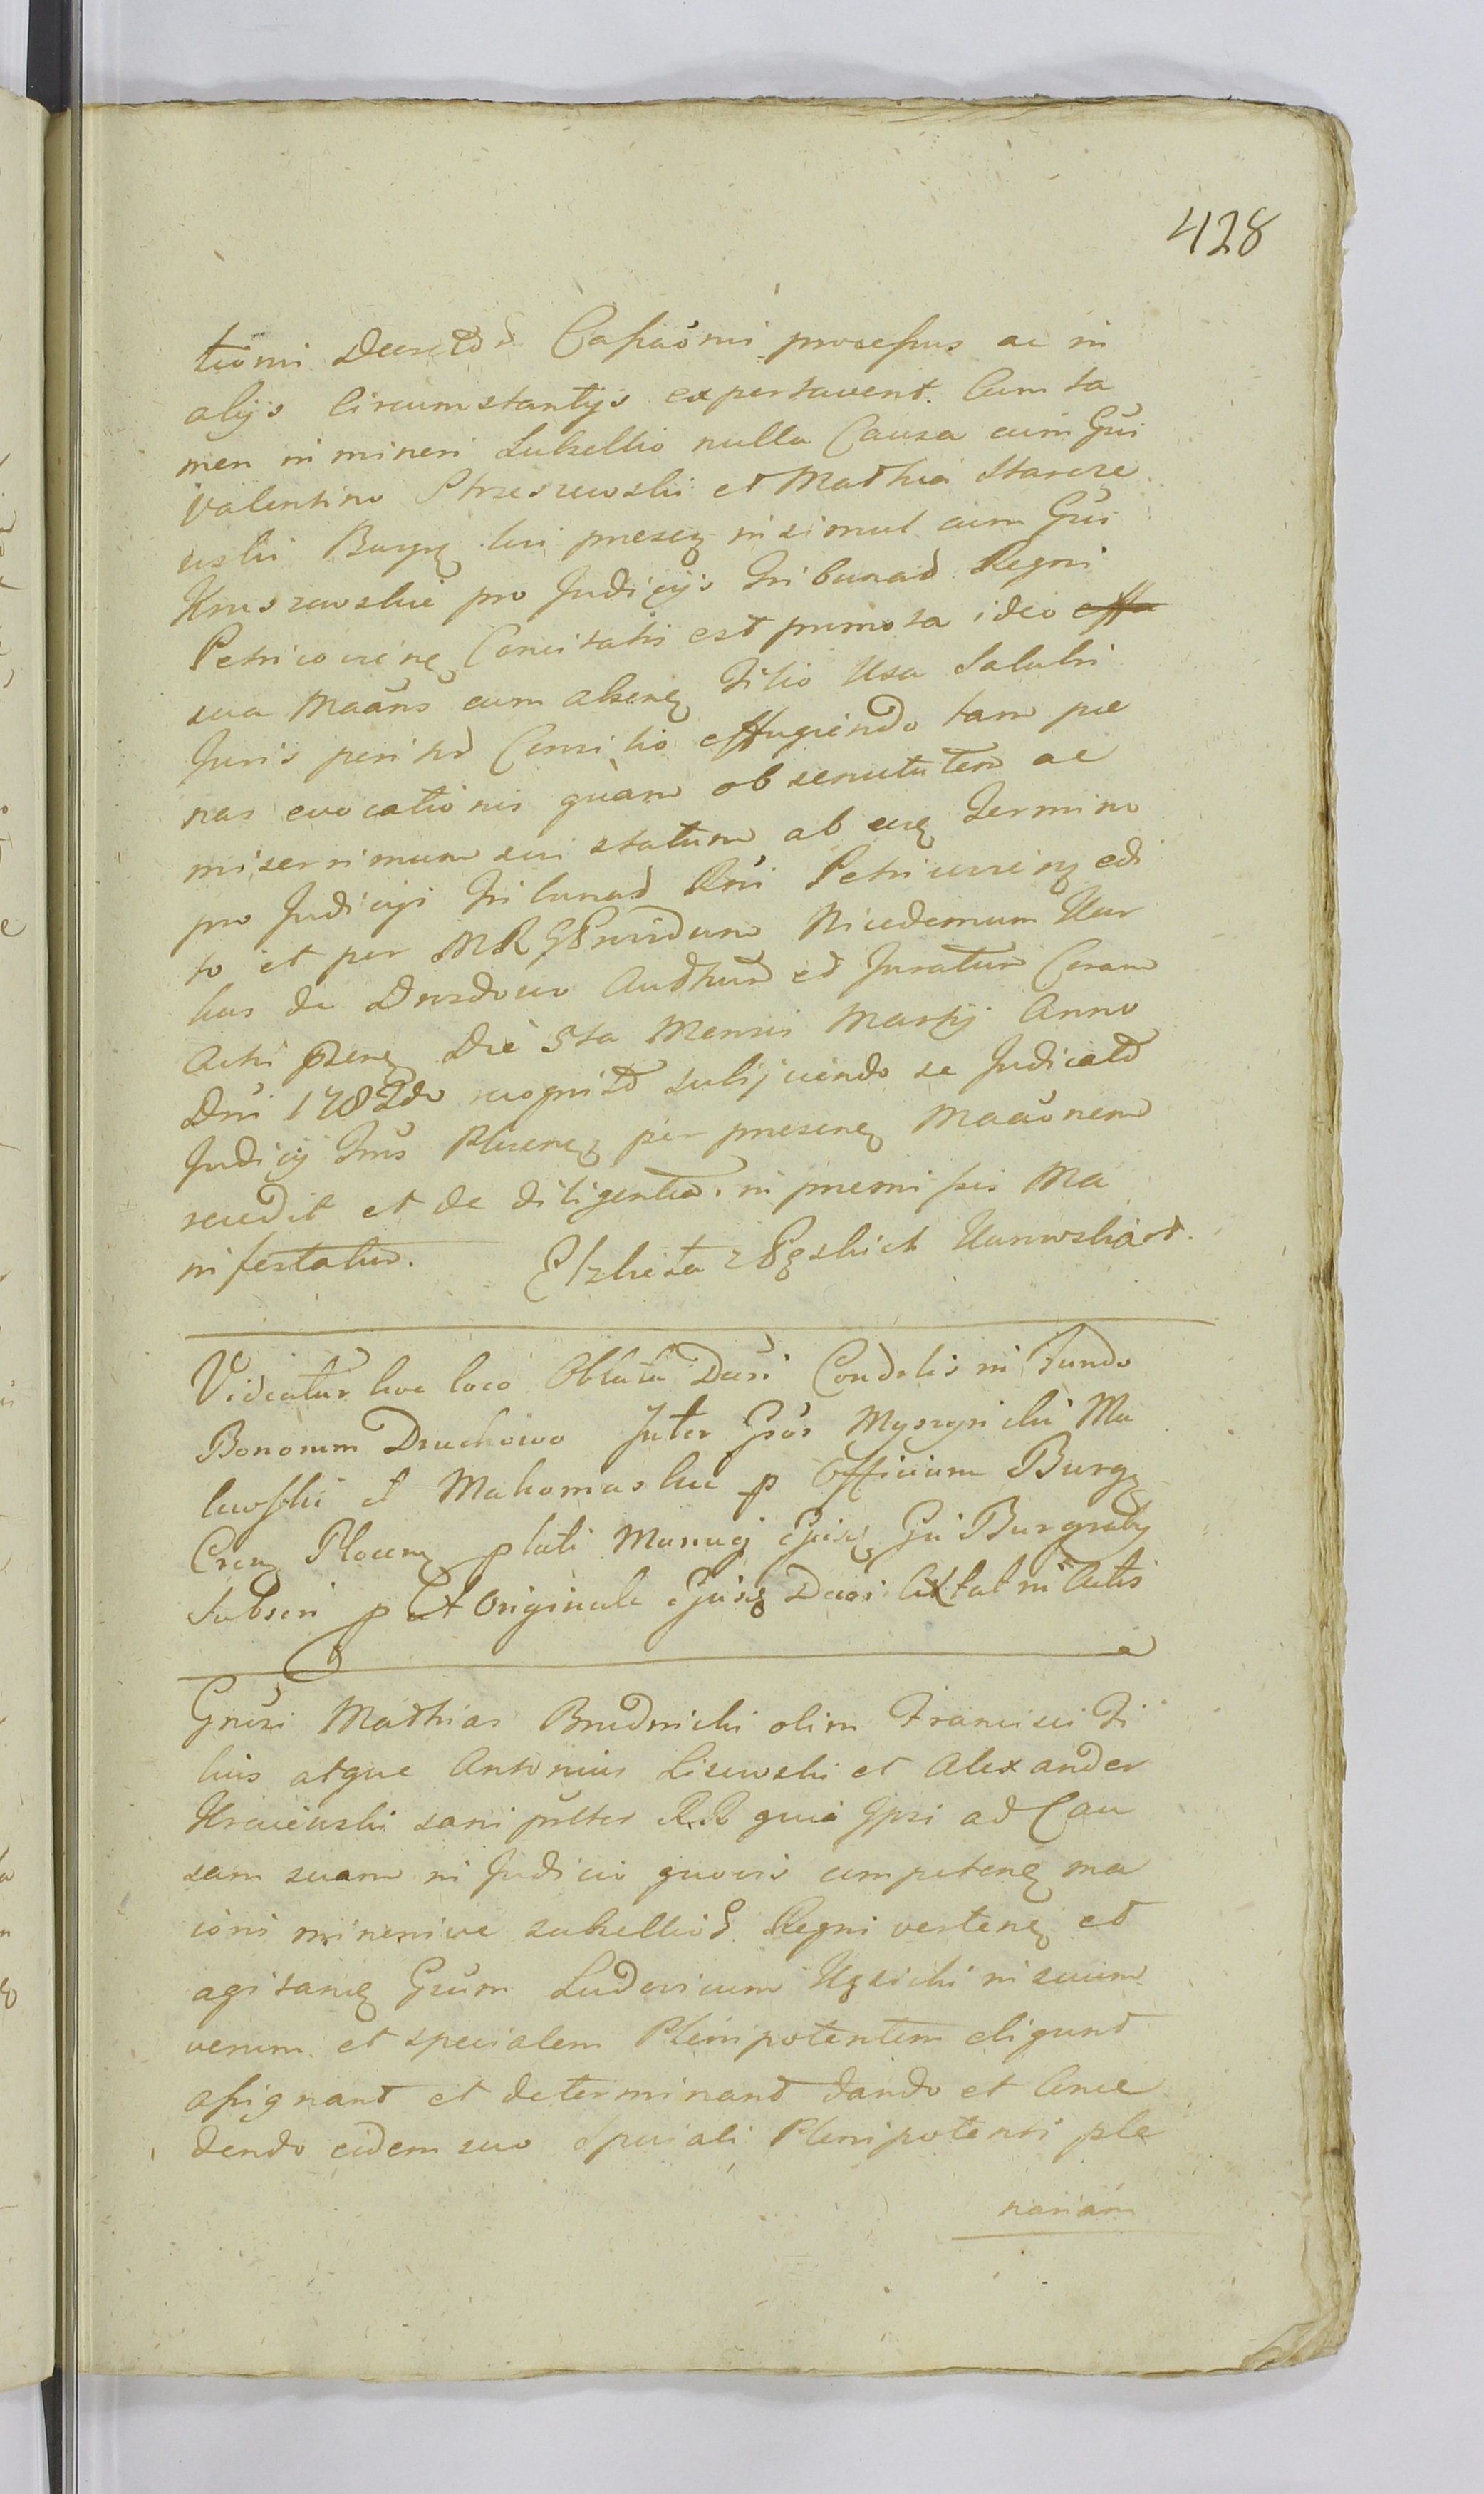 428
tioni Decretor Cassaoni processus ac in
alijs Circumstantijs expertavent. Cum ta
men in mineri Subsellio nulla Causa cum Gni
Valentino Strzeszewski et Mathia Starcze
wski Burgę presę insimul cum Gni
Kruszewskie pro Judicijs Tribunad Regni
Petricovienę Concitatis est promota ideo effu
sua Maans cum absenę Filio Usa Salubri
Juris peritor Consilio effugiendo tam pœ
nas evocationis quam ob senectutem ac
miserrimum sui statum ab eię Termino
pro Judicijs Tribunad Rni Petricovienę edi
to et per MR Providum Nicodemum Kur
kus de Drozdowo Authum et Juratum Coram
Actis pzenę Die 5ta Mensis Martij Anno
Dni 1782do recognito subijciendo se Judicato
Judicij Tris Plocenę per presenę Maaonem
recedit et de diligentia in premissis Ma
nifestatur. Elzbieta z Kunwskich
Videatur hoc loco Oblata Decri Condelis in Fundo
Bonorum Druchowo Inter Gsos Myszynski Ma
lewski et Makomaskie p Officium Burgę
Crenę Plocenę plati Manuę Ejusę Gni Burgraby
Subscri p Et Originale Ejusę Decri Extat in Actis
Gnisi Mathias Brudnicki olim Francisci Fi
lius atque Antonius Lisewski et Alexander
Kraiewski sani pnlter RR quia Ipsi ad Cau
sam suam in Judicio quovis competenę ma
ioris minorisve subselliod Regni vertenę et
agitanę Gsum Ludovicum Uzsicki in suum
verum et specialem Plenipotentem eligunt
assignant et determinant dando et Conce
dendo eidem suo Speciali Plenipotenti ple
nariam